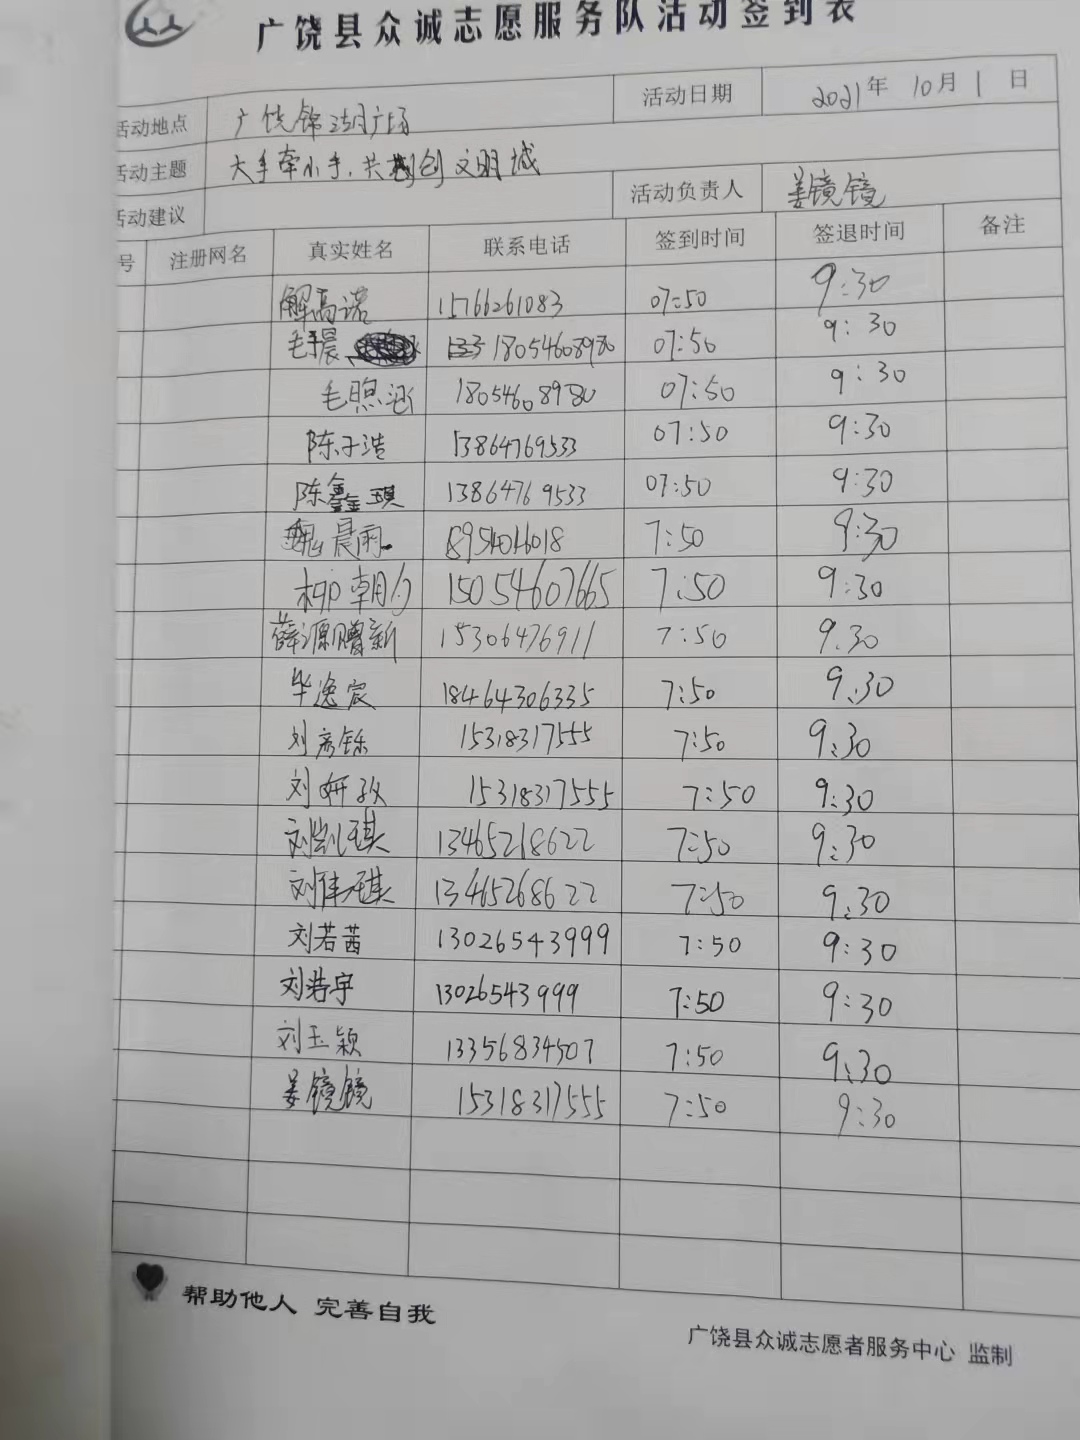 广饶县众诚志愿服务队活动签到表
活动地点 广饶锦湖广场 活动日期 2021年 10月 1 日
活动主题 大手牵小手,共创文明城
活动建议 活动负责人 姜镜镜
号 注册网名 真实姓名 联系电话 签到时间 签退时间 备注
解高诺 15766261083 07:50 9:30
毛予晨 18054608980 07:50 9:30
毛煦涵 18054608980 07:50 9:30
陈子浩 13864769533 07:50 9:30
陈鑫琪 13864769533 07:50 9:30
魏晨雨 7:50 9:30
柳朝 15054607665 7:50 9:30
薛源赠新 15306476911 7:50 9.30
毕逸宸 18464306335 7:50 9:30
刘彦铄 15318317555 7:50 9:30
刘妍孜 15318317555 7:50 9:30
刘凯琪 13465218622 7:50 9:30
刘伟琪 13465268622 7:50 9:30
刘若茜 13026543999 7:50 9:30
刘浩宇 13026543999 7:50 9:30
刘玉颖 13356834507 7:50 9:30
姜镜镜 15318317555 7:50 9:30
帮助他人 完善自我
广饶县众诚志愿者服务中心 监制